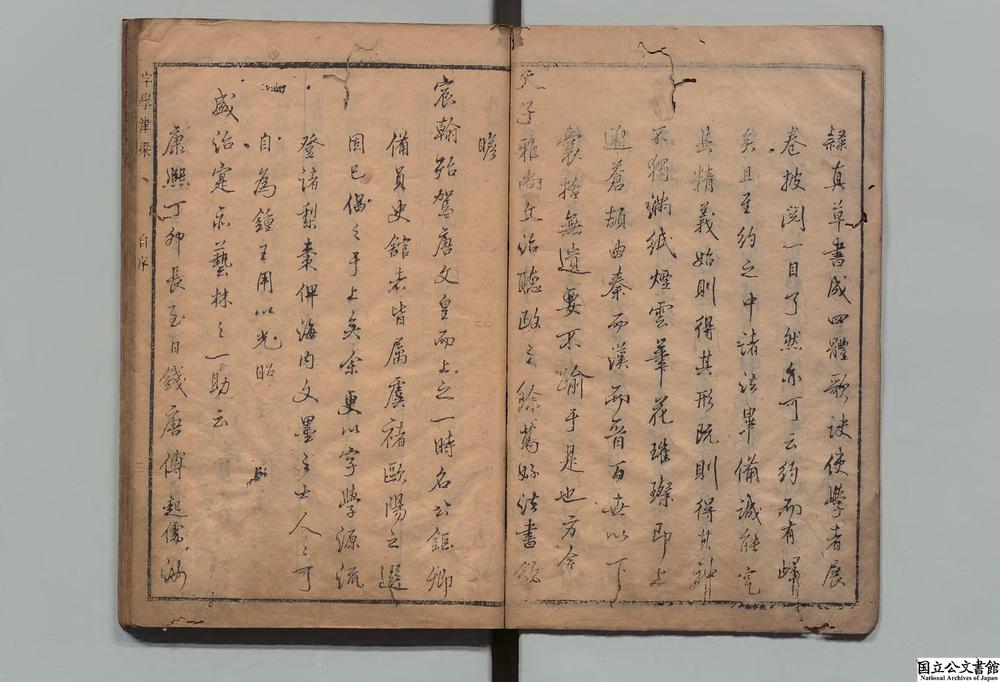 隸真草書成四體歌訣使學者展
卷披閱一目了然亦可云約而有
矣且至約之中諸法畢備誠能
其精義始則得其形既則得其神
不獨滿紙煙雲筆花璀璨即上
遡蒼頡曲秦而漢而晉百世以下
囊括無遺要不踰乎是也方今
天子雅尚文治聽政之餘篤好法書
瞻
宸翰殆駕唐文皇而上之一時名公鉅卿
備員史舘者皆属虞褚歐陽之選
固已偶之乎上矣余更以字學源流
登諸梨棗俾海内文墨之士人之可
自為鍾王用以光昭
盛治寔亦藝林之一助云
康熙丁卯長至日錢唐傅起儒
字學津梁
自序
国立公文書館
National Archives of Japan